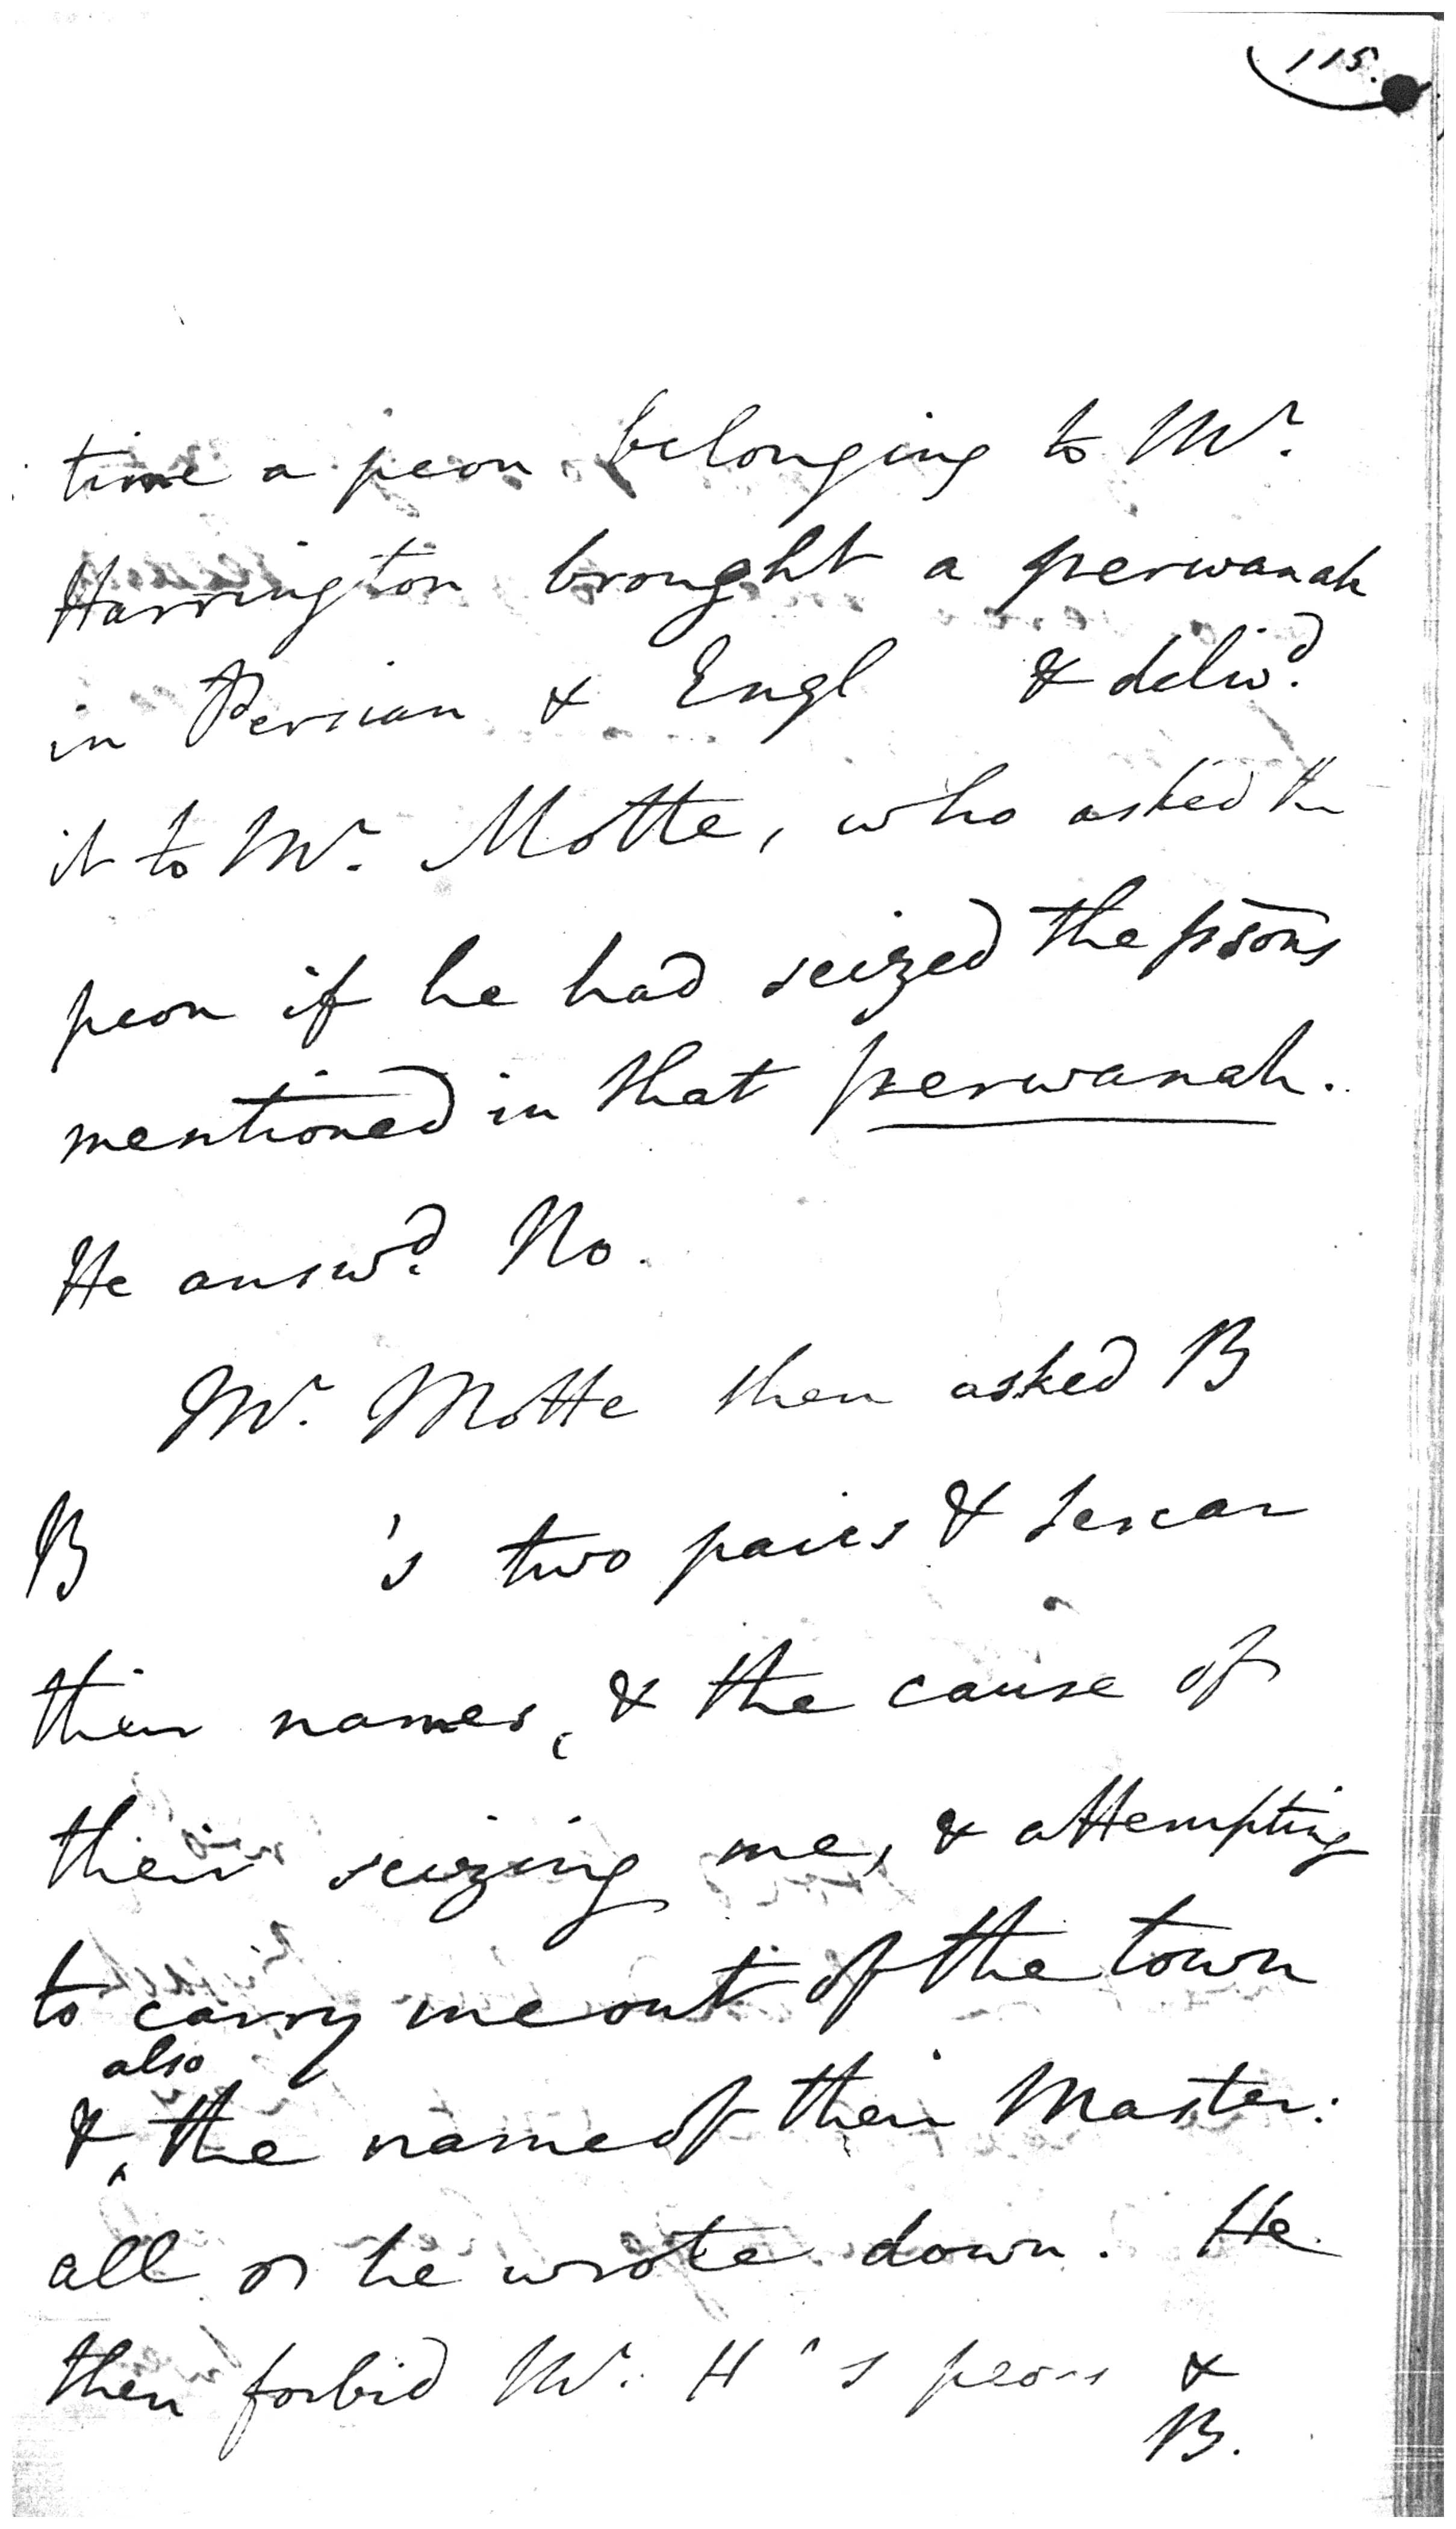 115.
time a peon belonging to Mr.
Harrington brought a perwanah
in Persian & Engl & delivd.
it to Mr. Motte, who asked the
peon if he had seized the psons
mentioned in that perwanah.
He answd. No.
Mr. Motte then asked B
B 's two paies & Sercar
their names, & the cause of
their seizing me, & attempting
to carry me out of the town
also
& the name of their Master:
all he wrote down. He
then forbid Mr. H 's peons &
B.